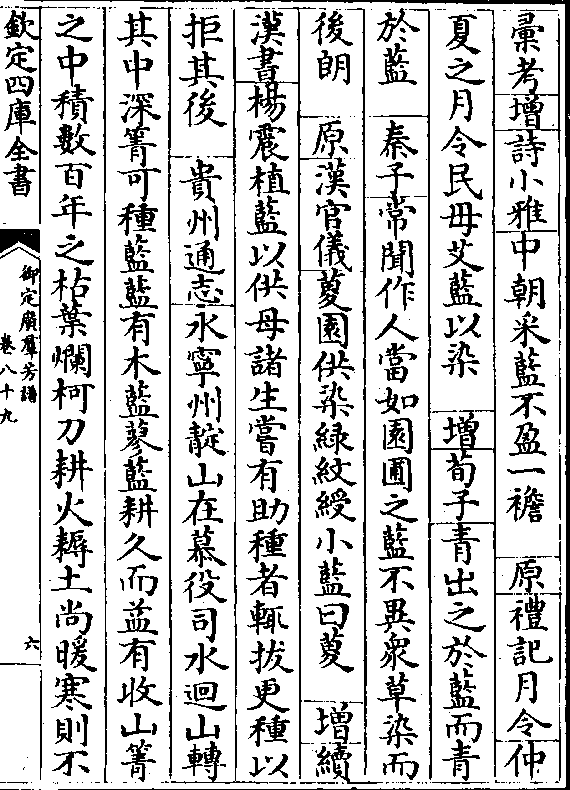 彚考增詩小雅中朝采藍不盈一襜　原禮記月令仲
夏之月令民毋艾藍以染　增荀子青出之於藍而青
於藍　秦子常聞作人當如園圃之藍不異衆草染而
後朗　原漢官儀葼園供染緑紋綬小藍曰葼　增續
漢書楊震植藍以供母諸生嘗有助種者輒拔更種以
拒其後　貴州通志永寧州靛山在慕役司水迴山轉
其中深箐可種藍藍有木藍蓼藍耕久而益有收山箐
之中積數百年之枯葉爛柯刀耕火耨土尚暖寒則不
欽定四庫全書
御定廣羣芳譜
卷八十九
六